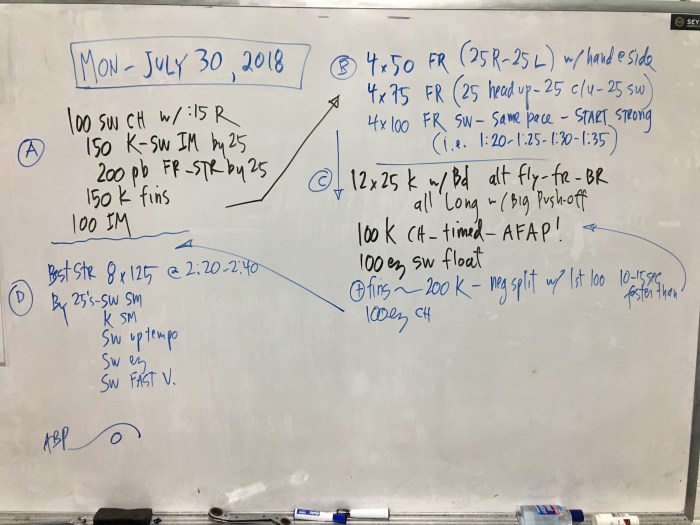 MON - JULY 30, 2018
A
100 SW CH w/ :15 R
150 K-SW IM by 25
200 pb FR-STR by 25
150 K fins
100 IM
B
4x50 FR (25R-25L) w/ hand e side
4x75 FR (25 head up - 25 c/u - 25 sw)
4x100 FR SW - same pace - START STRONG
(i.e. 1:20-1:25-1:30-1:35)
C
12x25 K w/ Bd alt fly-fr-BR
all Long w/ Big Push-off
100 K CH - timed - AFAP!
100 ez sw float
+ fins ~ 200 K - neg split w/ 1st 100 10-15sec
faster than
100 ez CH
D
Best STR 8x125 @ 2:20-2:40
By 25's - SW SM
K SM
SW up tempo
SW ez
SW FAST V.
ABP
SEY